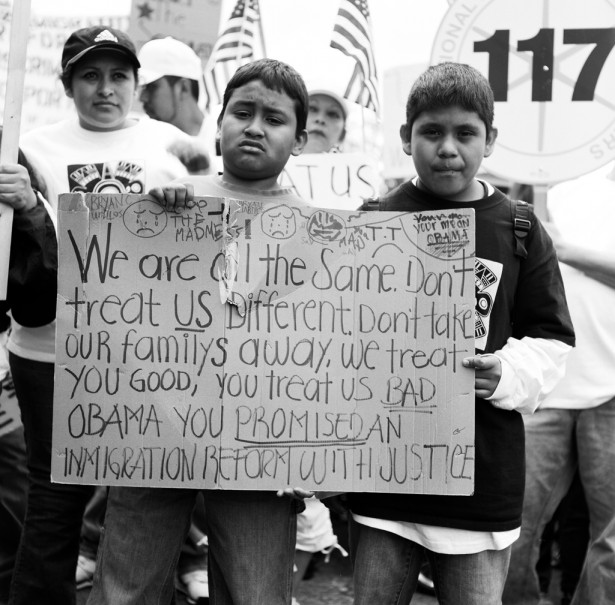 117
T US
BRYANT
THE
MADNESS
MAD
T.T
your MEAN
OBAMA
We are all the Same. Don't
treat US Different. Don't take
OUR familys away, we treat
YOU GOOD, you treat us BAD
OBAMA YOU PROMISED AN
INMIGRATION REFORM WITH JUSTICE